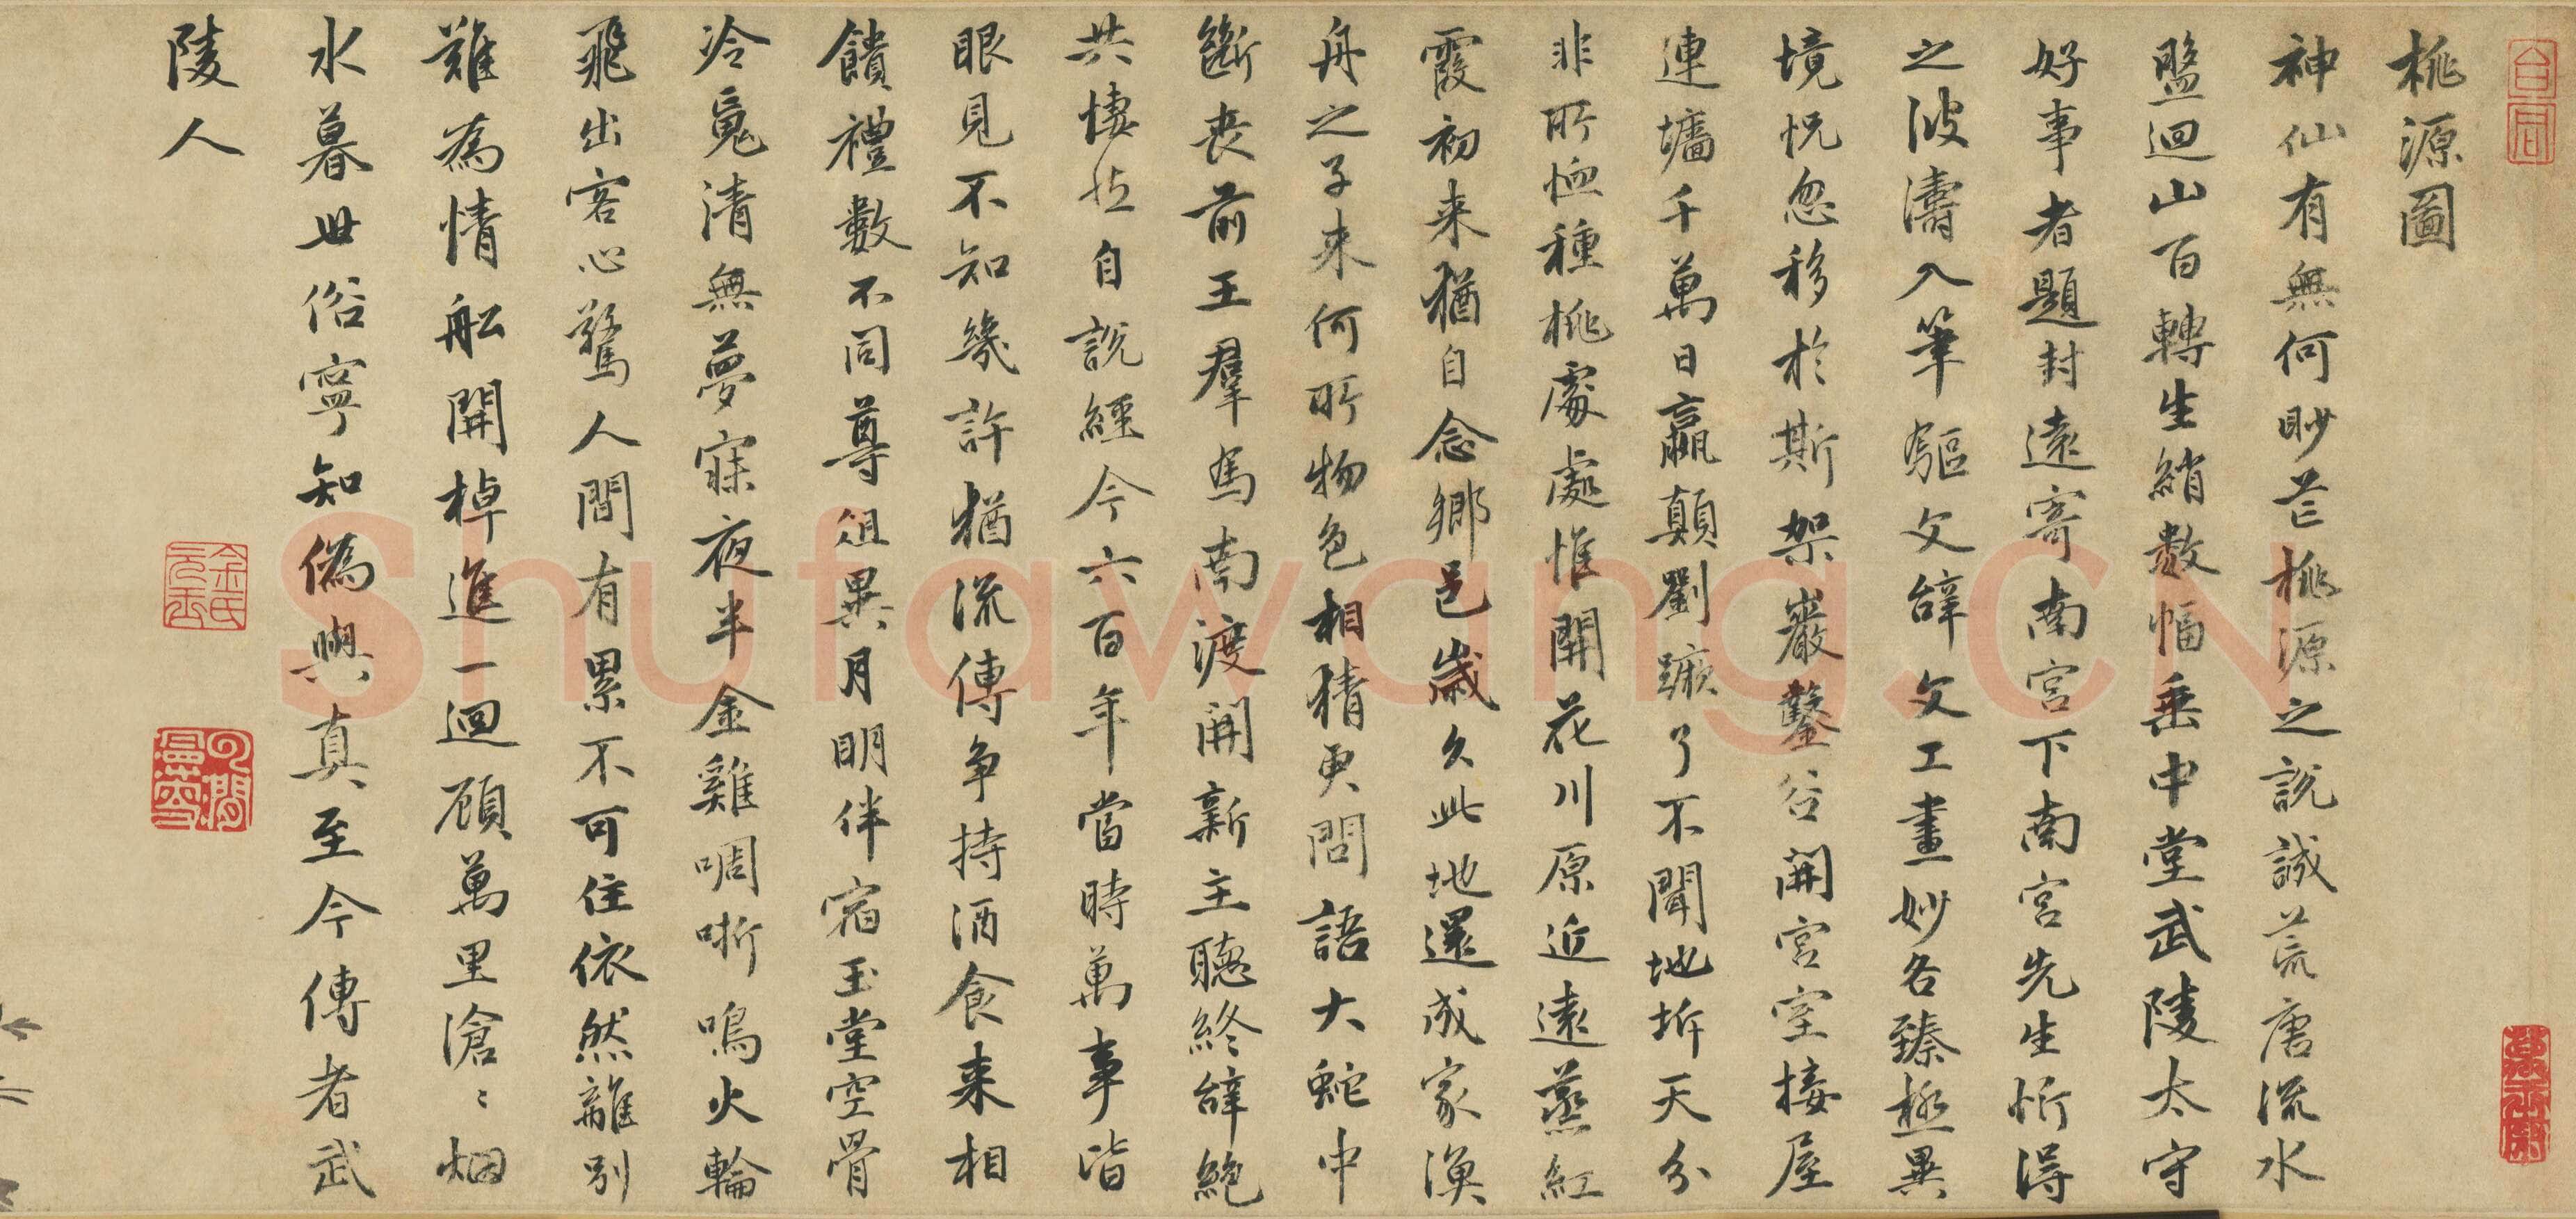 桃源圖
神仙有無何眇芒桃源之說誠荒唐流水
盤迴山百轉生綃數幅垂中堂武陵太守
好事者題封遠寄南宮下南宮先生忻得
之波濤入筆驅文辝文工畫妙各臻極異
境恍忽移於斯架巖鑿谷開宮室接屋
連墻千萬日嬴顛劉蹶了不聞地坼天分
非所恤種桃處處惟開花川原近遠蒸紅
霞初来猶自念鄉邑歲久此地還成家漁
舟之子来何所物色相猜更問語大蛇中
斷喪前王羣馬南渡開新主聽終辝絶
共悽然自說經今六百年當時萬事皆
眼見不知幾許猶流傳争持酒食来相
饋禮數不同尊俎異月明伴宿玉堂空骨
冷䰟清無夢寐夜半金雞啁哳鳴火輪
飛出客心驚人間有累不可住依然離別
難為情船開棹進一迴顧萬里滄〻烟
水暮世俗寧知僞與真至今傳者武
陵人
Shufawang.CN